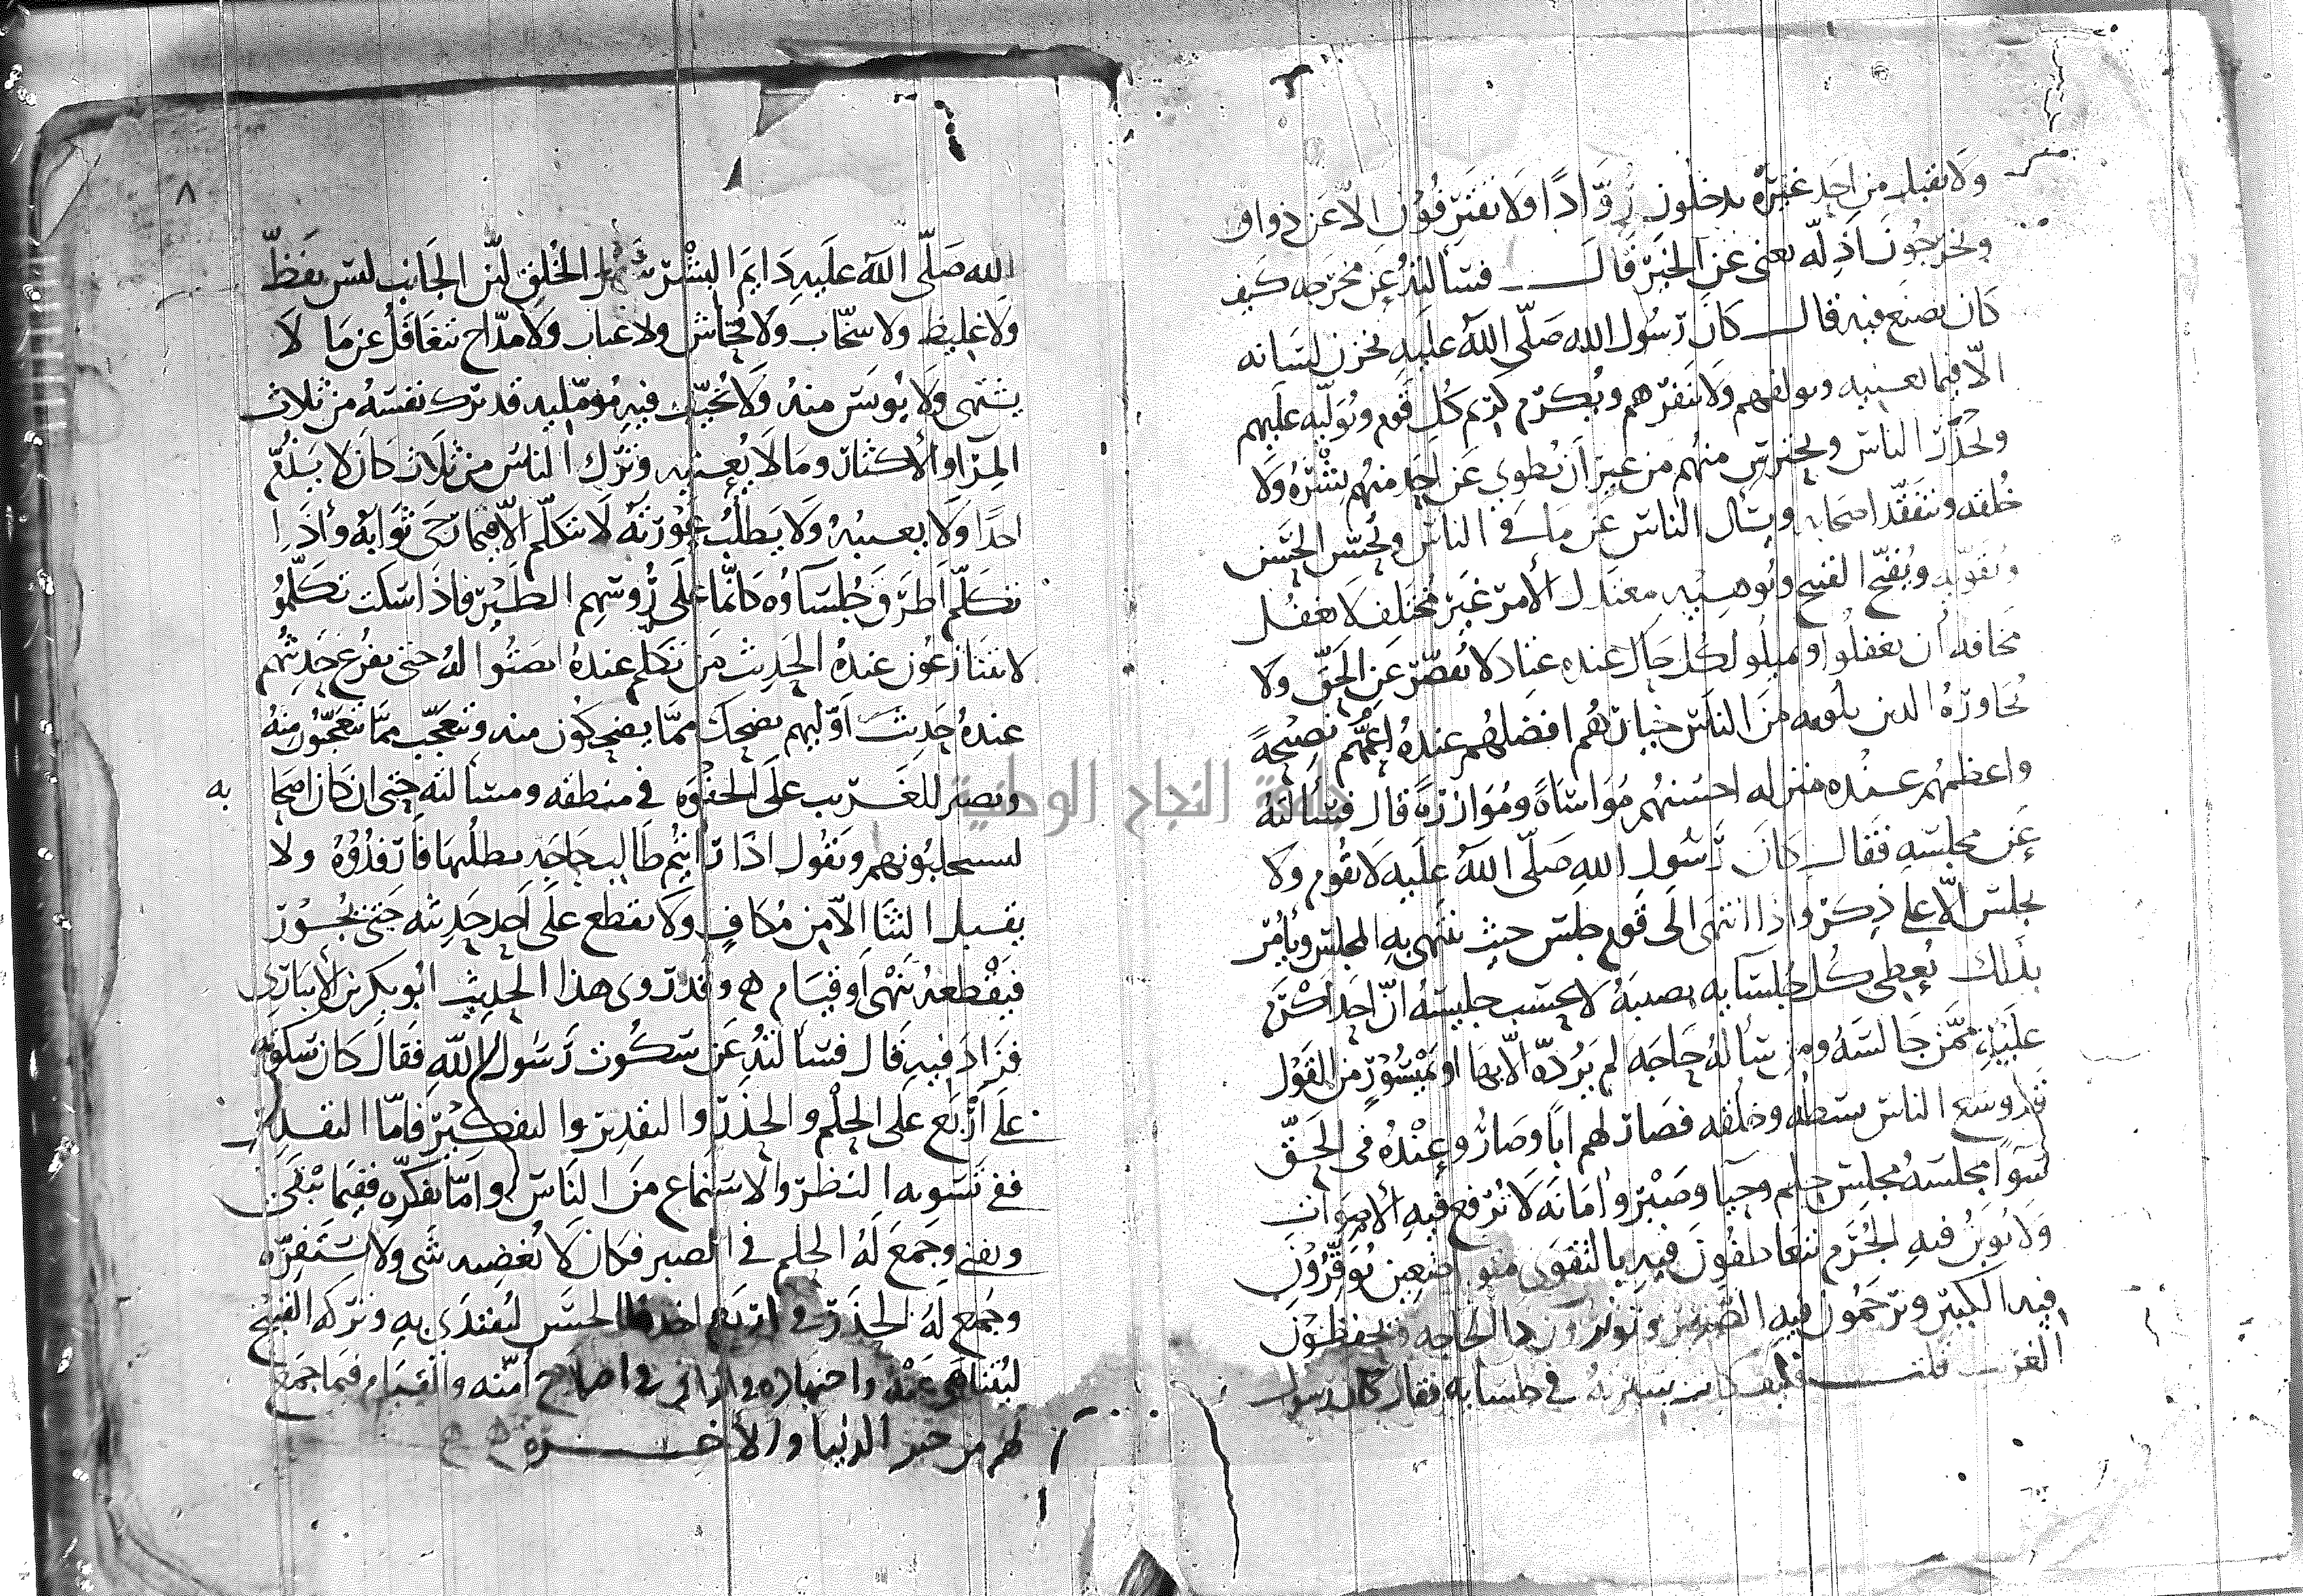 ولا يقبل من احد غيره يدخلون رُوّادًا ولا يفترقون الّا عن ذواق
ويخرجون اذلّه يعني عن الخير قال فسألته عن مخرجه كيف
كان يصنع فيه قال كان رسول الله صلّى الله عليه يخزن لسانه
الّا فيما يعنيه ويولفهم ولا ينفرهم ويكرم كريم كل قوم ويولّيه عليهم
ويحذّر الناس ويحترس منهم من غير ان يطوي عن احد منهم بشره ولا
خلقه ويتفقّد اصحابه ويسأل الناس عن ما في الناس ويحسّن الحسن
ويقوّيه ويقبّح القبيح ويوهنه معتدل الأمر غير مختلف لا يغفل
مخافه أن يغفلوا او يميلوا لكل حال عنده عتاد لا يقصّر عن الحقّ ولا
يجاوزه الذين يلونه من الناس خيارهم افضلهم عنده اعمّهم نصيحةً
واعظمهم عنده منزله احسنهم مواساةً وموازرةً قال فسألته
عن مجلسه فقال كان رسول الله صلّى الله عليه لا يقوم ولا
يجلس الّا على ذكر واذا انتهى الى قوم جلس حيث ينتهي به المجلس ويأمر
بذلك يعطي كل جلسآيه نصيبه لا يحسب جليسه انّ احدا اكرم
عليه ممّن جالسه ومن سأله حاجه لم يردّه الّا بها او بميسور من القول
قد وسع الناس بسطه وخلقه فصار لهم ابًا وصاروا عنده في الحقّ
سوآ مجلسه مجلس حلم وحيآ وصبر وامانه لا ترفع فيه الأصوات
ولا توبن فيه الحُرم يتعاطفون فيه بالتقوى متواضعين يوقّرون
فيه الكبير ويرحمون فيه الصغير ويوثرون ذا الحاجه ويحفظون
الغريب قلت فكيف كانت سيرته في جلسايه فقال كان رسول
٨
الله صلّى الله عليه دايم البشر سهل الخلق ليّن الجانب ليس بفظّ
ولا غليظ ولا سخّاب ولا فحّاش ولا عياب ولا مدّاح يتغافل عن ما لا
يشتهى ولا يوس منه ولا يخيّب فيه مؤمّليه قد ترك نفسه من ثلاث
المرآ والأكثار وما لا يعنيه وترك الناس من ثلاث كان لا يذمّ
احدًا ولا يعيبه ولا يطلب عورته لا يتكلّم الّا فيما رجى ثوابه وأذا
تكلّم اطرق جلسآوه كانّما على رُوسهم الطير فاذا سكت تكلّموا
لا يتنازعون عنده الحديث من تكلم عنده انصتوا له حتى يفرغ حديثهم
عنده حديث اوّليهم يضحك ممّا يضحكون منه ويتعجّب ممّا يتعجّبون منه
ويصبر للغريب على الجفوه في منطقه ومسألته حتى ان كان اصحا به
ليستجلبونهم ويقول اذا رأيتم طالب حاجه يطلبها فارفدوه ولا
يقبل الثنا الّا من مُكافٍ ولا يقطع على أحد حديثه حتى يجوز
فيقطعه بنهي أو قيام ه وقد روى هذا الحديث ابو بكر بن الأنباري
فزاد فيه قال فسألته عن سكوت رسول الله فقال كان سكوته
على أربع على الحلم والحذر والتقدير والتفكير فامّا التقدير
ففي تسويه النظر والاستماع من الناس وامّا تفكّره ففيما يبقى
ويفنى وجمع له الحلم في الصبر فكان لا يغضبه شي ولا يستفزّه
وجمع له الحذر في اربع اخذه الحسن ليُقتدى به وتركه القبيح
ليُتناهى عنه واجتهاده في الراي في اصلاح أمّته والقيام فيما جمع
لهم من خير الدنيا والأخره
جامعة النجاح الوطنية